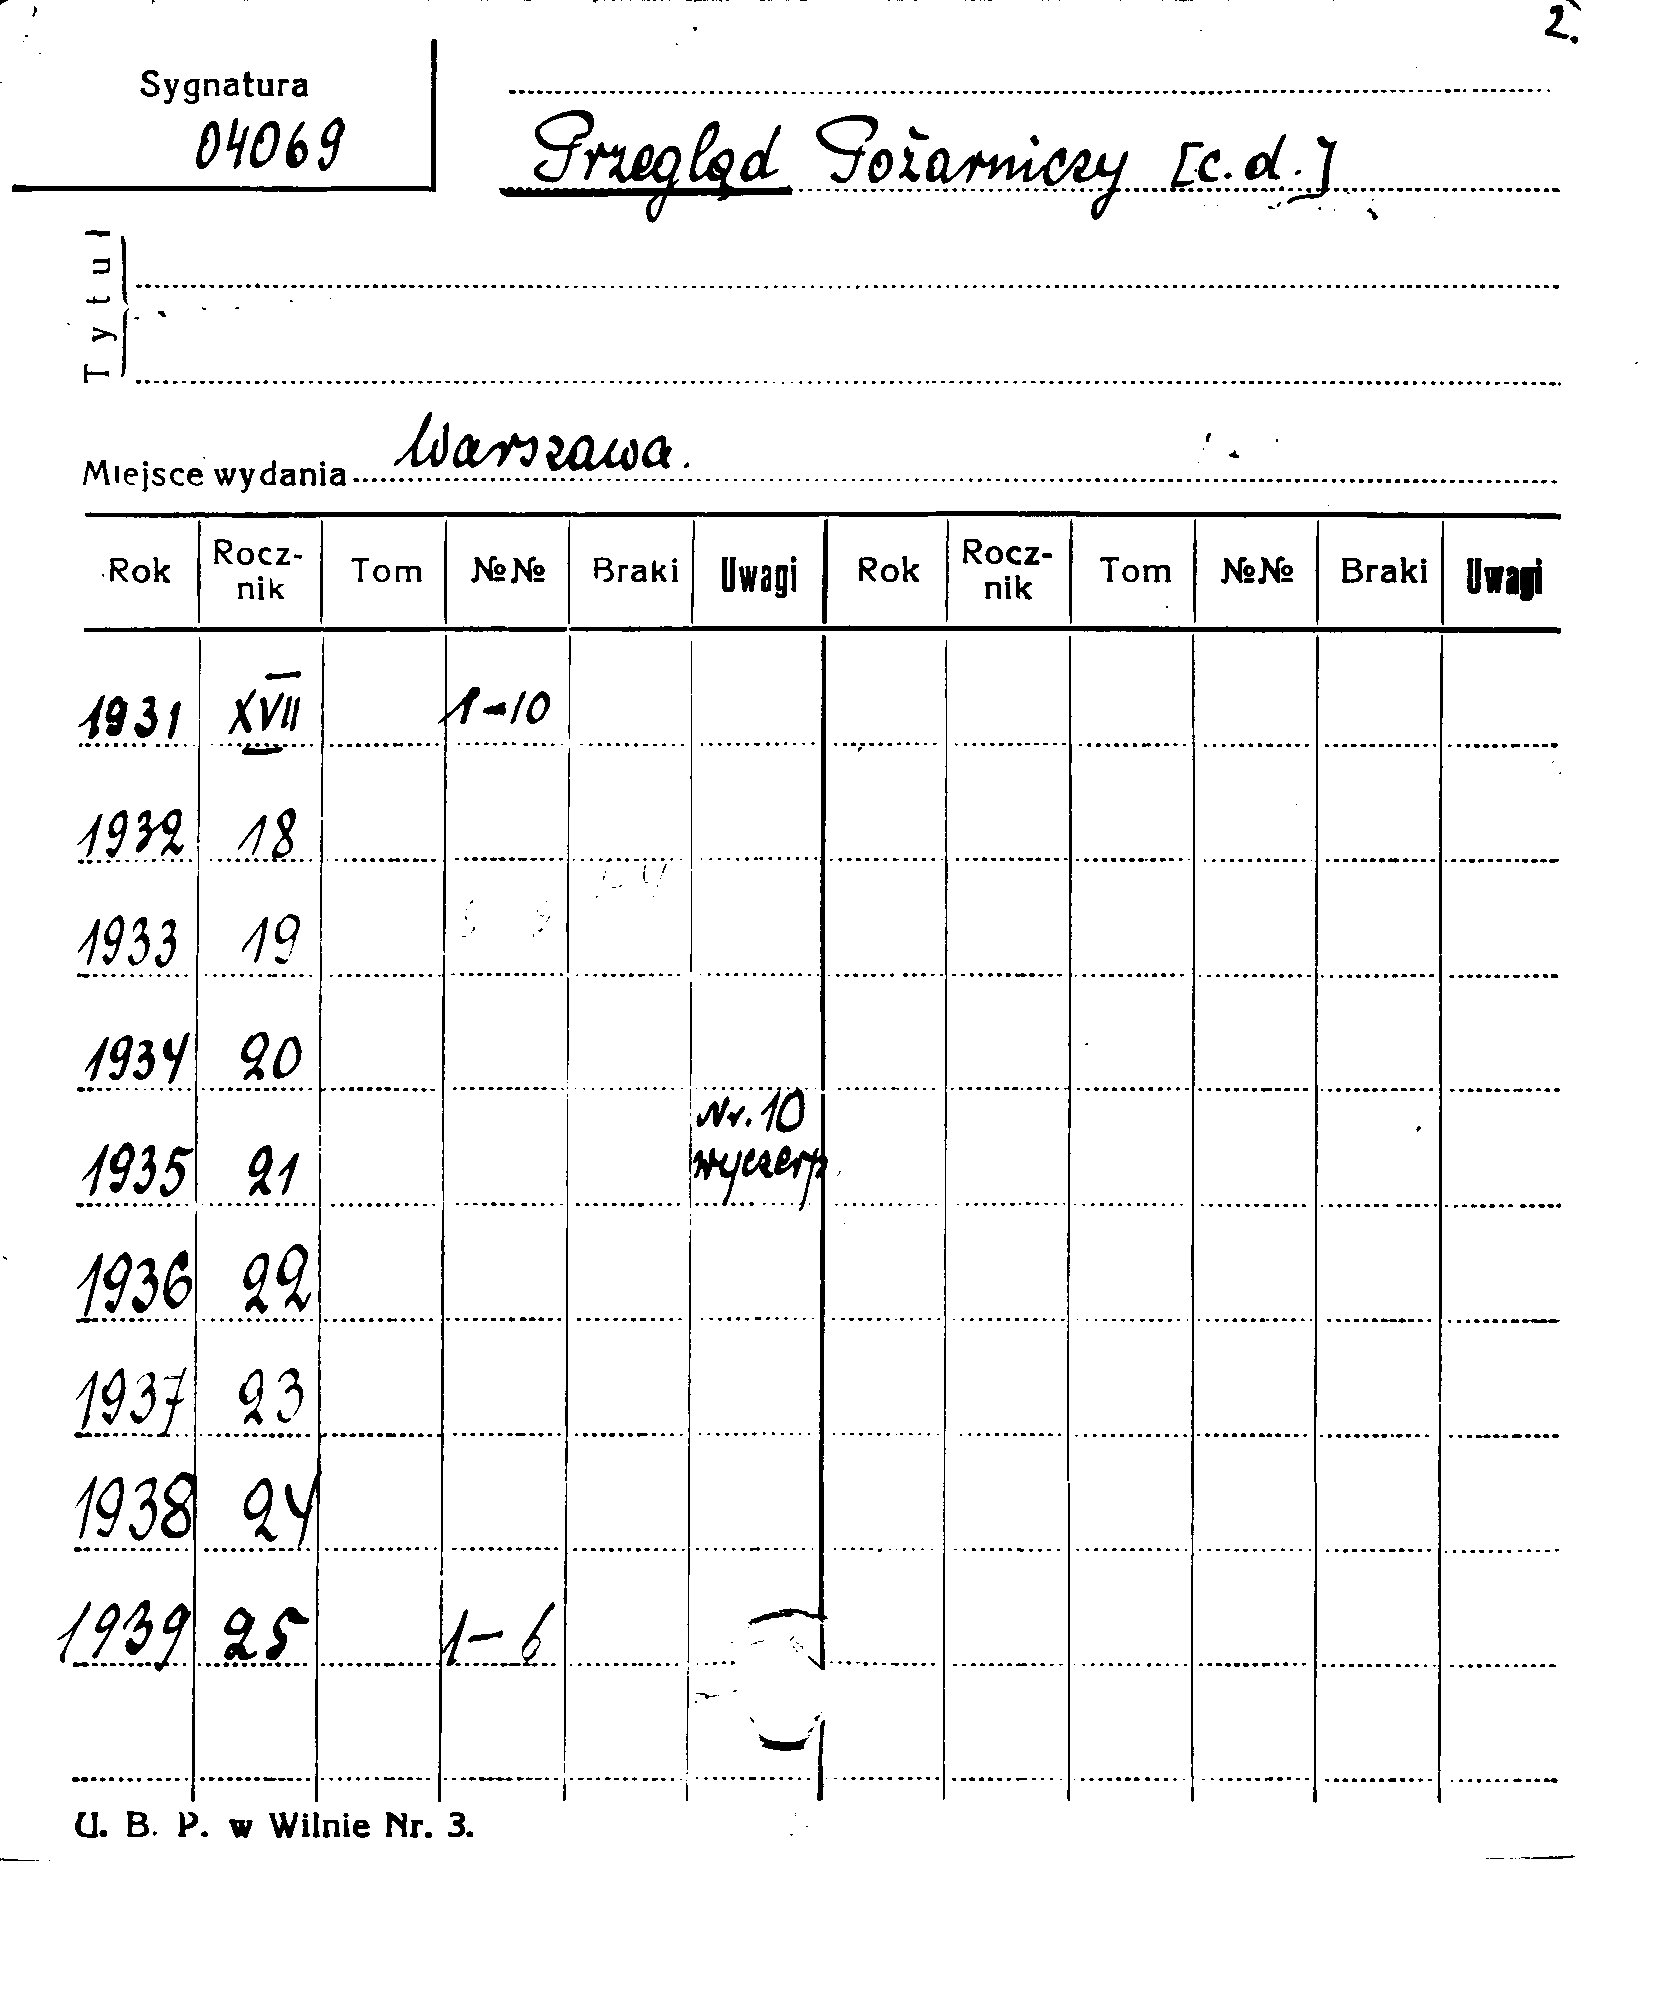 2.
Sygnatura
04069
Przegląd Pożarniczy [c.d.]
Tytuł
Miejsce wydania Warszawa.
Rok Rocz-nik Tom №№ Braki Uwagi Rok Rocz-nik Tom №№ Braki Uwagi
1931 XVII 1-10
1932 18
1933 19
1934 20
1935 21 Nr. 10 wyczerp
1936 22
1937 23
1938 24
1939 25 1-6
U. B. P. w Wilnie Nr. 3.